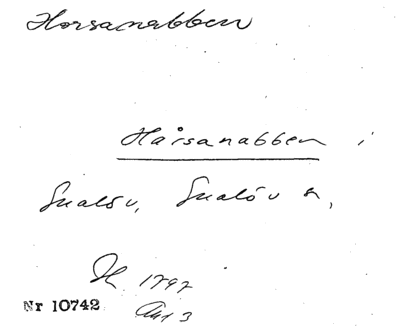 Horsanabben
Hårsanabben i
Svalöv, Svalöv s,
1797
Nr 10742
Akt 3